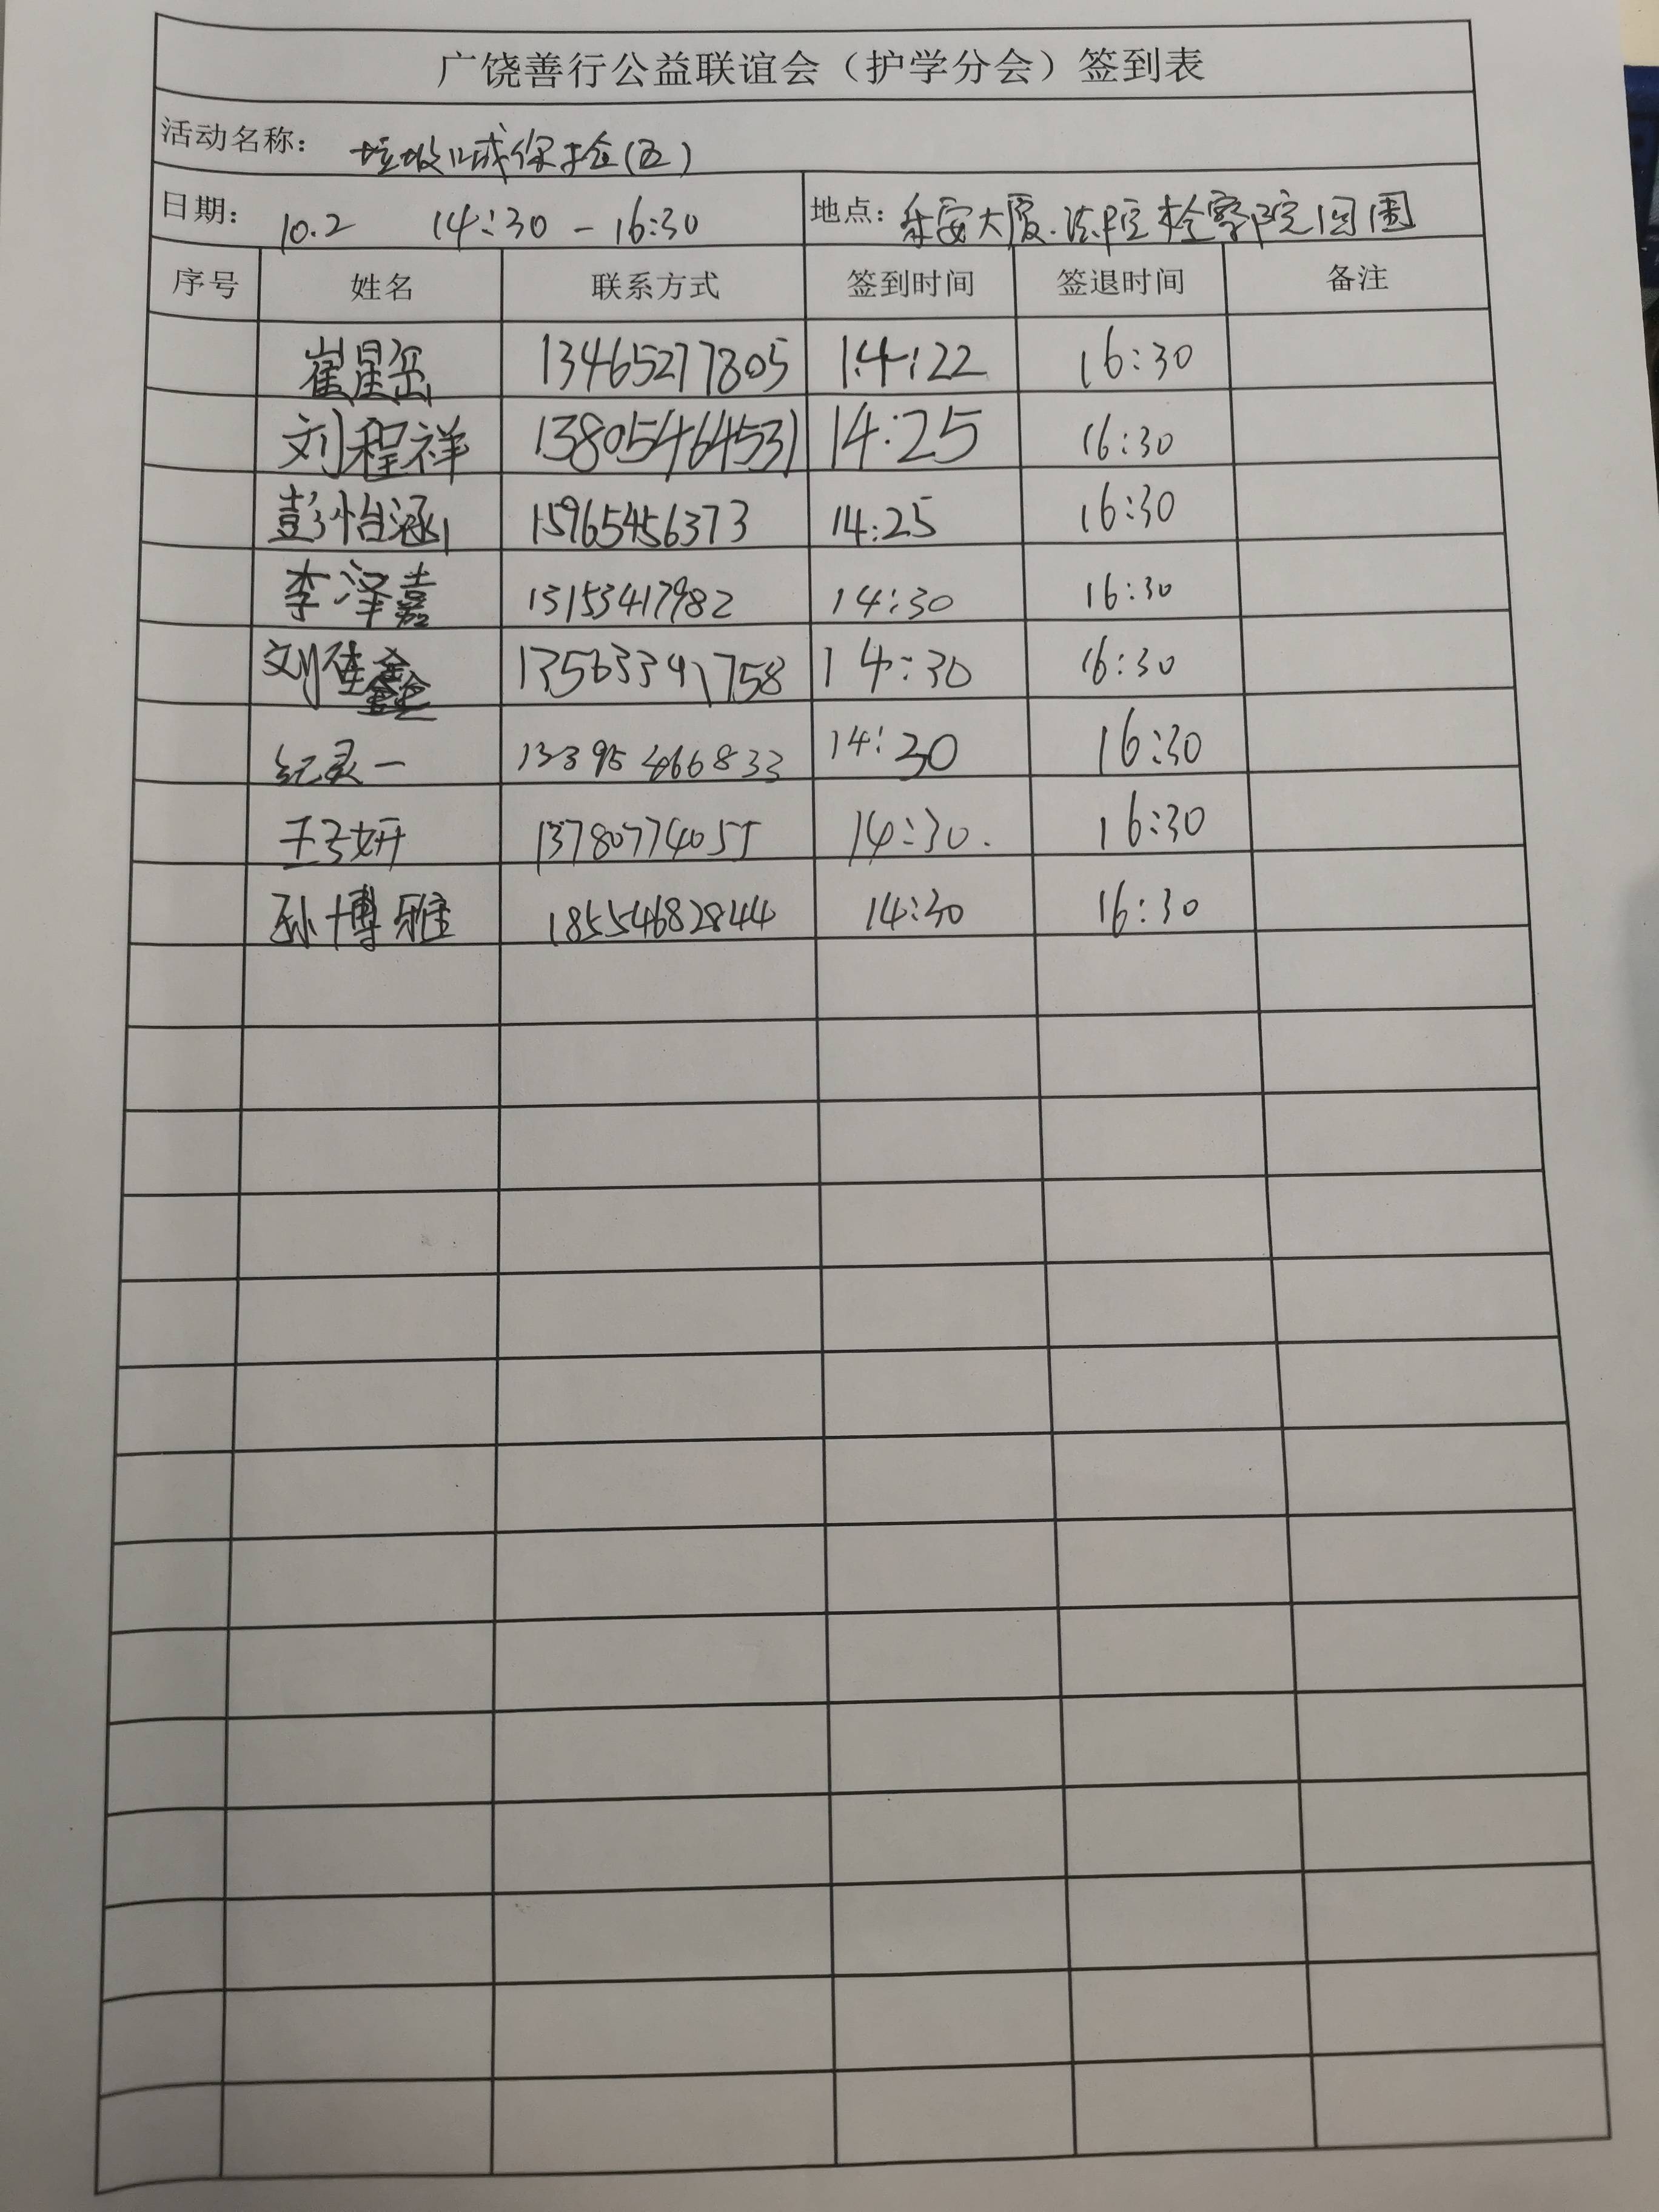 广饶善行公益联谊会（护学分会）签到表
活动名称： 垃圾减保捡(五)
日期： 10.2 14:30-16:30 地点：乐安大厦.法院检察院周围
序号 姓名 联系方式 签到时间 签退时间 备注
崔星岳 13465277805 14:22 16:30
刘程祥 13805464531 14:25 16:30
彭怡涵 15965456373 14:25 16:30
李泽嘉 13153417982 14:30 16:30
刘佳鑫 13563391758 14:30 16:30
纪灵一 13395466833 14:30 16:30
王子妍 13780774055 14:30. 16:30
孙博雅 18554682844 14:30 16:30